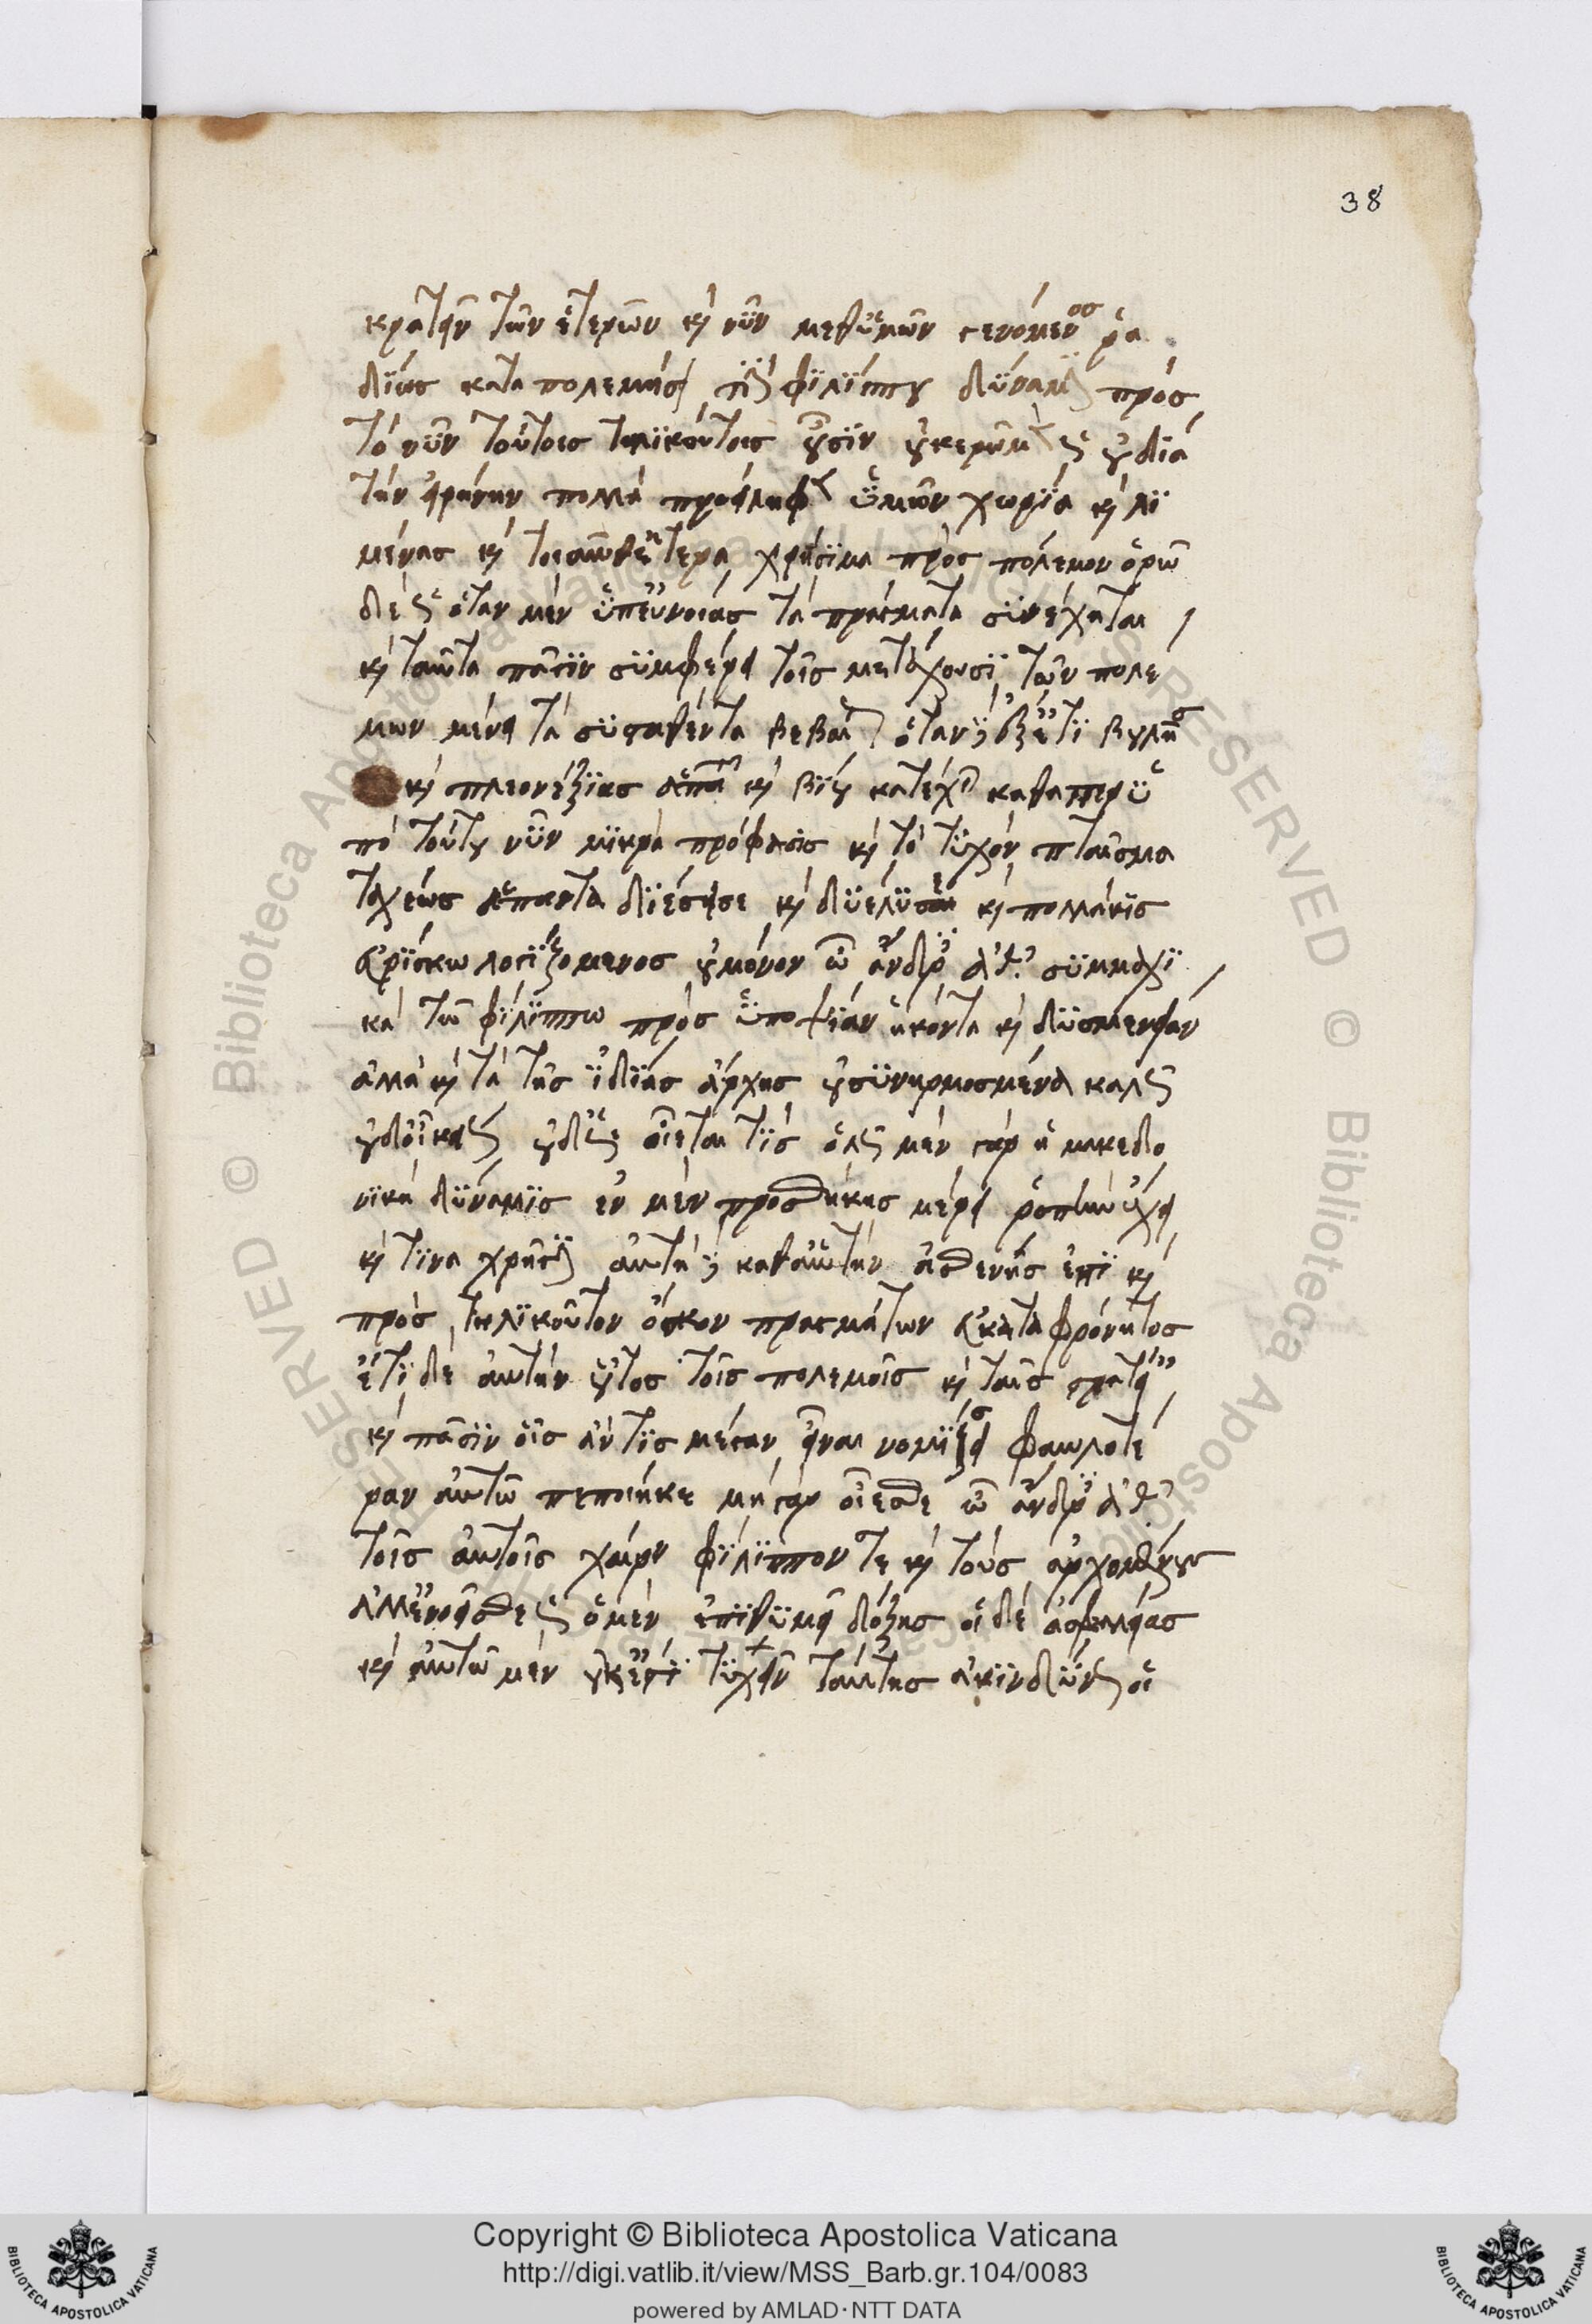 38
κρατεῖν τῶν ἑτέρων καὶ νῦν μεθ' ὑμῶν γενόμενος ῥα
δίως καταπολεμήσειν τὴν φιλίππου δύναμιν πρὸς
τὸ νῦν τούτοις τηλικούτοις οὖσιν οὐκ ἐρρωμένως οὐ διὰ
τὴν εἰρήνην πολλὰ προείληφεν ὑμῶν χωρία καὶ λι
μένας καὶ τοιαῦθ' ἕτερα χρήσιμα πρὸς πόλεμον ὁρῶ
δὲ ὡς ὅταν μὲν ὑπ' εὐνοίας τὰ πράγματα συνέχηται
καὶ ταῦτα πᾶσιν συμφέρει τοῖς μετέχουσι τῶν πολέ
μων μένει τὰ συσταθέντα βεβαίως ὅταν δ' ἐξ ἐπιβουλῆς
καὶ πλεονεξίας ἀπάτῃ καὶ βίᾳ κατέχηται καθάπερ ὑ
πὸ τούτου νῦν μικρὰ πρόφασις καὶ τὸ τυχὸν πταῖσμα
ταχέως ἅπαντα διέσεισε καὶ διέλυσεν καὶ πολλάκις
εὑρίσκω λογιζόμενος οὐ μόνον ὦ ἄνδρες ἀθηναῖοι συμμαχι
κὰ τῷ φιλίππῳ πρὸς ὑποψίαν ἥκοντα καὶ δυσμένειαν
ἀλλὰ καὶ τὰ τῆς ἰδίας ἀρχῆς οὐ συνηρμοσμένα καλῶς
οὐδ' οἰκείως οὐδ' ὡς οἴεταί τις ὅλως μὲν γὰρ ἡ μακεδο
νικὴ δύναμις ἐν μὲν προσθήκης μέρει ῥοπὴν ἔχει
καί τινα χρῆσιν αὐτὴ δὲ καθ' αὑτὴν ἀσθενής ἐστι καὶ
πρὸς τηλικοῦτον ὄγκον πραγμάτων εὐκαταφρόνητος
ἔτι δὲ αὐτὴν οὗτος τοῖς πολέμοις καὶ ταῖς στρατείαις
καὶ πᾶσιν οἷς ἄν τις μέγαν εἶναι νομίσει φαυλοτέ
ραν αὑτῷ πεποίηκε μὴ γὰρ οἴεσθε ὦ ἄνδρες ἀθηναῖοι
τοῖς αὐτοῖς χαίρειν φίλιππόν τε καὶ τοὺς ἀρχομένους
ἀλλ' ἐννοεῖσθε ὡς ὁ μὲν ἐπιθυμεῖ δόξης οἱ δὲ ἀσφαλείας
καὶ αὐτῷ μὲν οὐκ ἔστι τυχεῖν ταύτης ἀκινδύνως οἱ
Copyright © Biblioteca Apostolica Vaticana
http://digi.vatlib.it/view/MSS_Barb.gr.104/0083
powered by AMLAD·NTT DATA